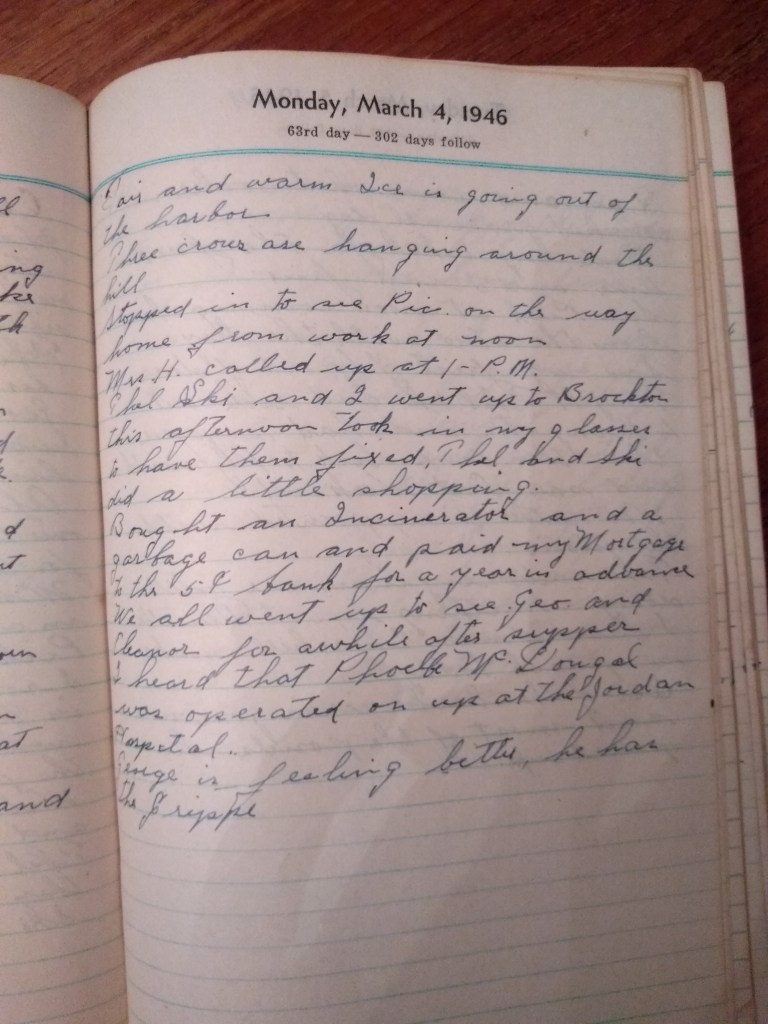 Monday, March 4, 1946
63rd day — 302 days follow
Fair and warm Ice is going out of
the harbor
Three crows are hanging around the
hill
Stopped in to see Pic. on the way
home from work at noon
Mrs H. called up at 1- P.M.
Phil Ski and I went up to Brockton
this afternoon took in my glasses
to have them fixed, Phil and Ski
did a little shopping.
Bought an Incinerator and a
garbage can and paid my Mortgage
to the 5¢ bank for a year in advance
We all went up to see Geo and
Eleanor for awhile after supper
I heard that Phoebe Mc Dougal
was operated on up at the Jordan
Hospital.
George is feeling better, he has
the Grippe
ing
ke
th
d
at
and